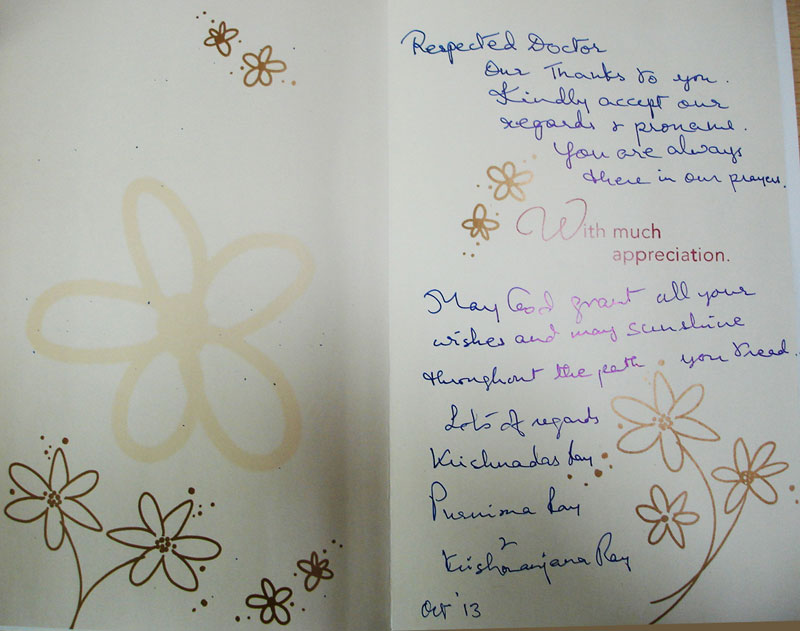 Respected Doctor
Our Thanks to you.
Kindly accept our
regards & proname.
You are always
there in our prayers.
With much
appreciation.
May God grant all your
wishes and may sunshine
throughout the path you tread.
Lots of regards
Krishnadas Ray
Purnima Ray
&
Krishnaranjana Ray
Oct '13